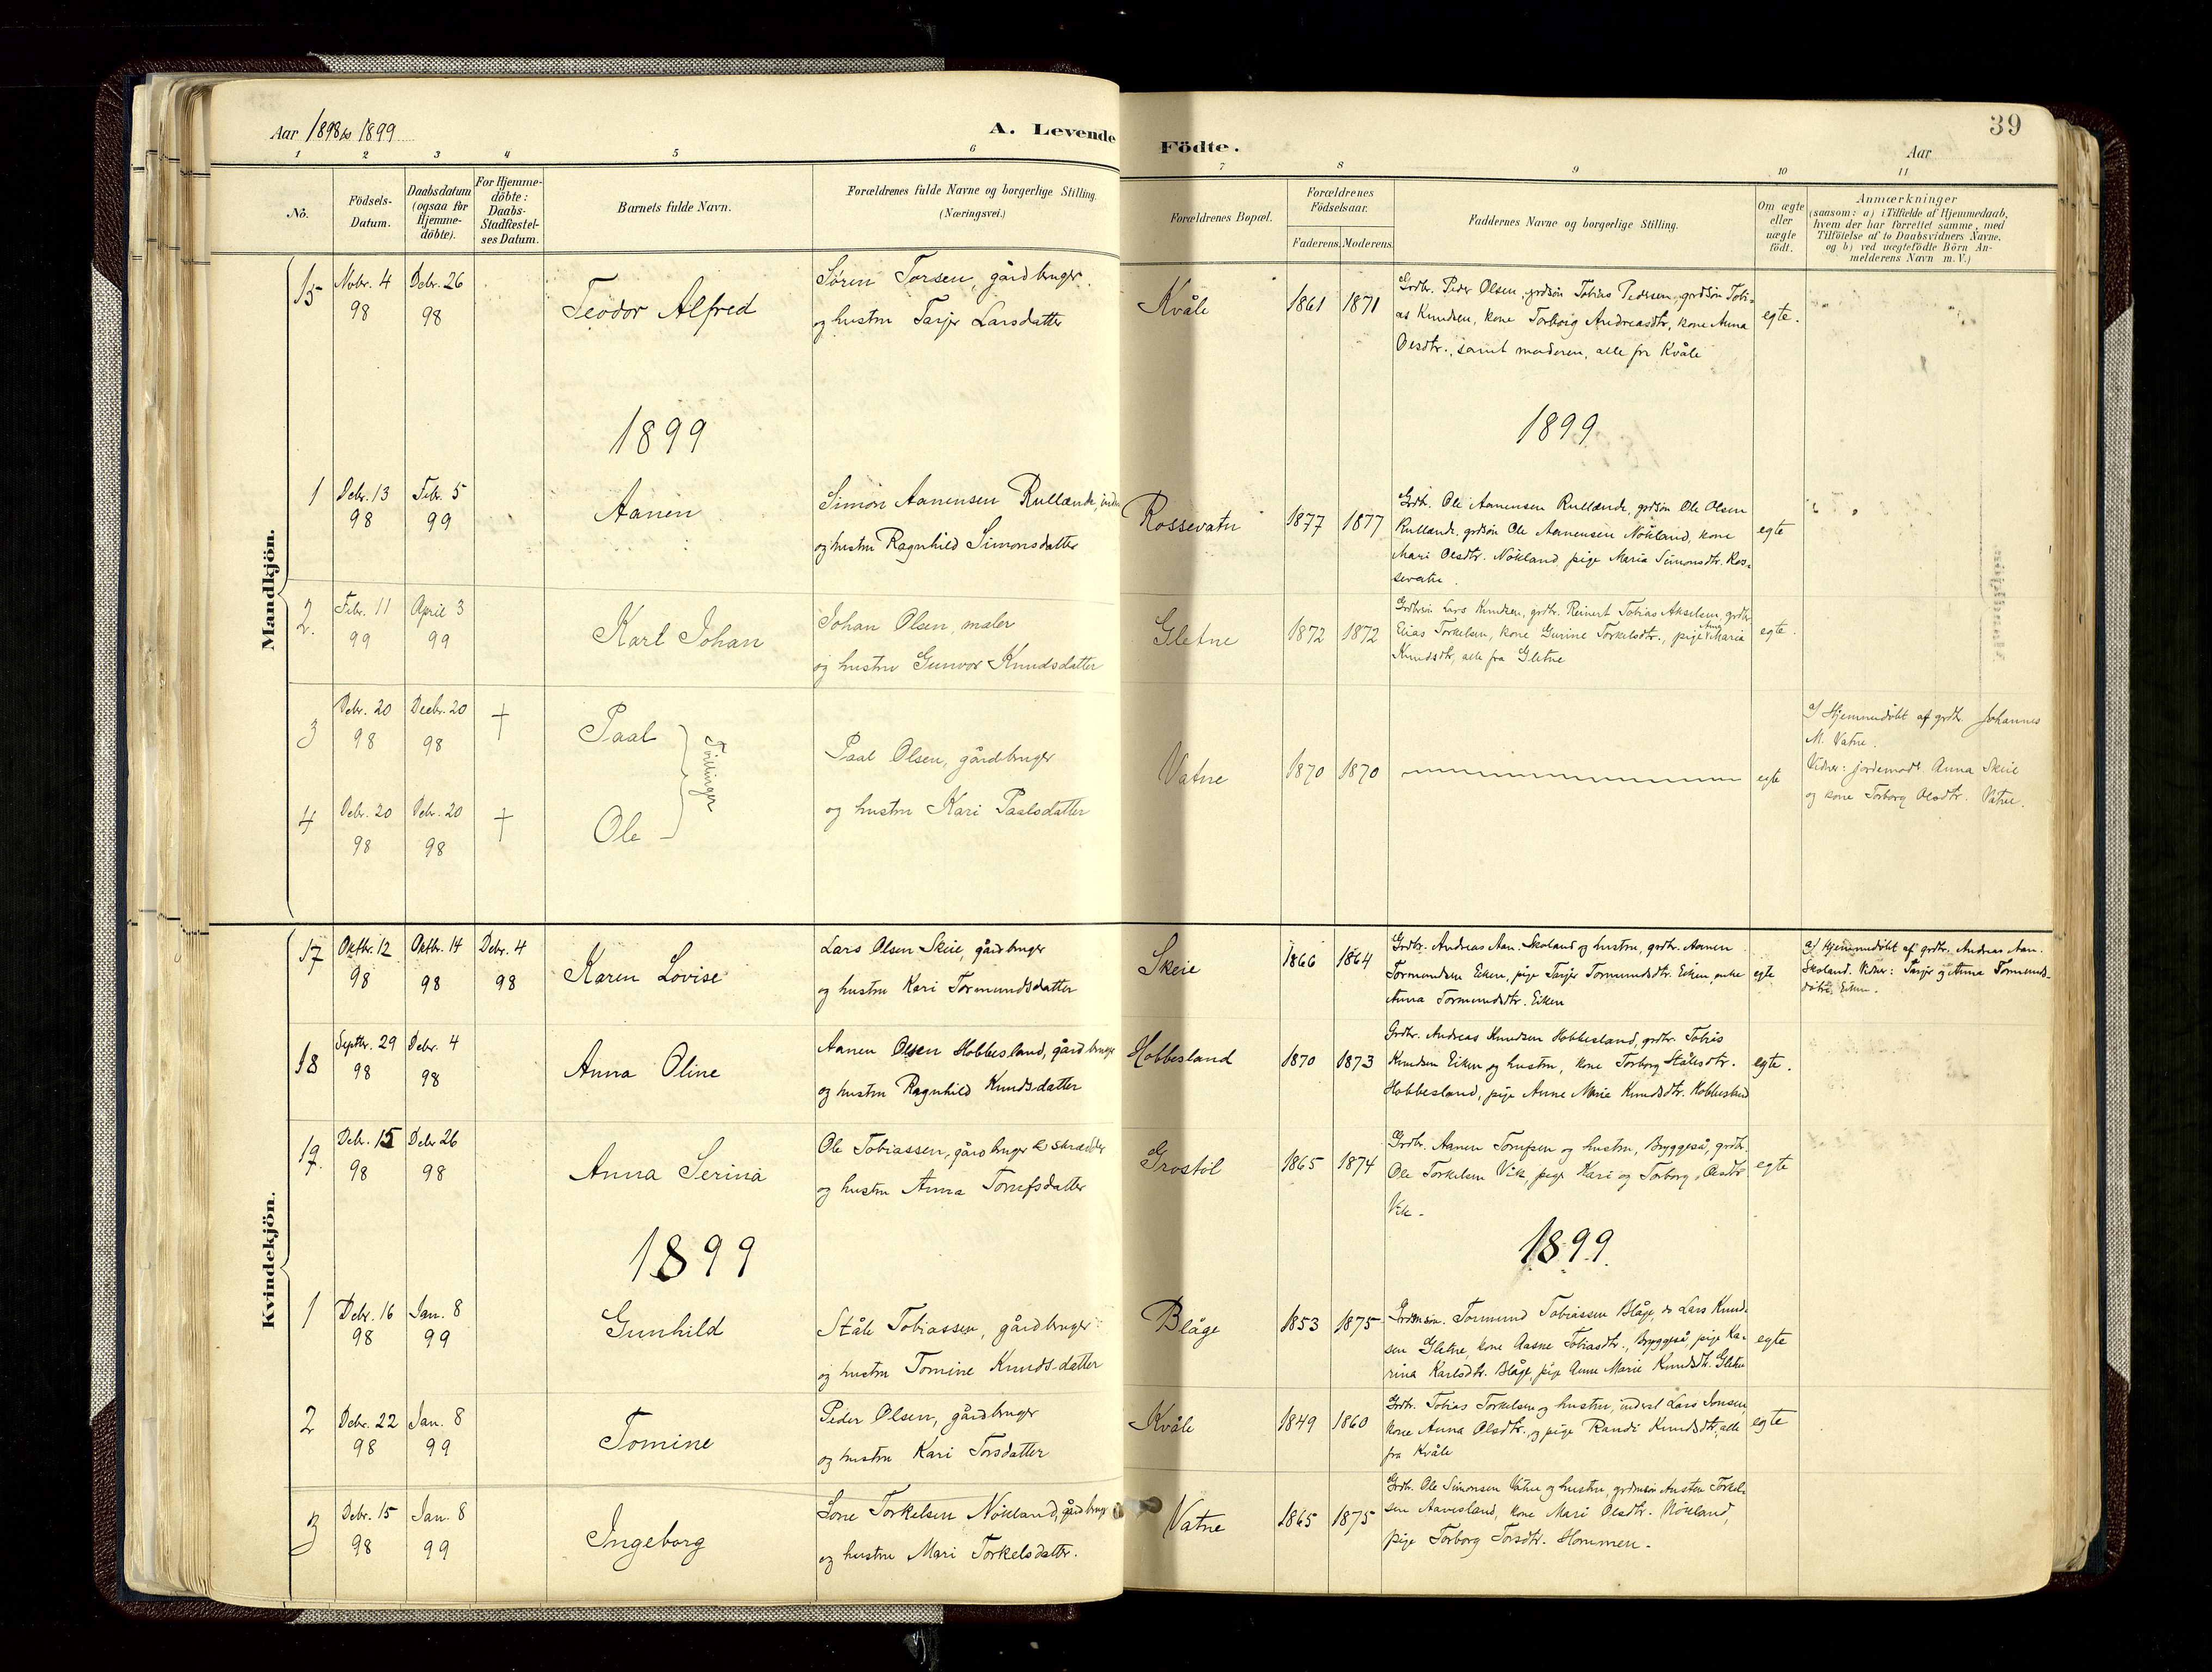 Aar 1898 1899
A. Levende
Födte.
39
Aar
1 2 3 4 5 6 7 8 9 10 11
No.
Födsels-
Datum.
Daabsdatum
(ogsaa for
Hjemme-
döbte).
For Hjemme-
döbte:
Daabs-
Stadfæstel-
ses Datum.
Barnets fulde Navn.
Forældrenes fulde Navne og borgerlige Stilling.
(Næringsvei.)
Forældrenes Bopæl.
Forældrenes
Födselsaar.
Faderens. Moderens.
Faddernes Navne og borgerlige Stilling.
Om ægte
eller
uægte
födt.
Anmærkninger
(saasom: a) i Tilfælde af Hjemmedaab,
hvem der har forrettet samme, med
Tilföielse af to Daabsvidners Navne.
og b) ved uægtefödte Börn An-
melderens Navn m. V.)
Mandkjön.
15 Novbr. 4 98 Debr. 26 98
Teodor Alfred
Sören Torsen, gårdbruger.
og hustru Tarjer Larsdatter
Kvåle
1861 1871
Grdbr. Peder Olsen, grdsön Tobias Pedersen, grdsön Tobi-
as Knudsen, kone Torborg Andreasdtr., kone Anna
Olsdtr., samt moderen, alle fra Kvåle
egte.
1899
1899
1 Debr. 13 98 Febr. 5 99
Aanen
Simon Aanensen Rullande,
og hustru Ragnhild Simonsdatter
Rossevatn
1877 1877
Grdb. Ole Aanensen Rullande, grdsön Ole Olsen
Rullande, grdsön Ole Aanensen Nökland, kone
Mari Olsdtr. Nökland, pige Maria Simonsdtr. Ros-
sevatn.
egte
2. Febr. 11 99 April 3 99
Karl Johan
Johan Olsen, maler
og hustru Gunvor Knudsdatter
Gletne
1872 1872
Grdbrsön Lars Knudsen, grdbr. Reinert Tobias Akselsen, grdbr.
Elias Torkelsen, kone Gurine Torkelsdtr., pige Anna Maria
Knudsdtr, alle fra Gletne
egte.
3 Debr. 20 98 Decbr. 20 98 †
Paal
4 Debr. 20 98 Debr. 20 98 †
Ole
Tvillinger
Paal Olsen, gårdbruger
og hustru Kari Paalsdatter
Vatne
1870 1870
egte
a) Hjemmedöbt af grdbr. Johannes
M. Vatne.
Vidner: jordemodr. Anna Skeie
og kone Torborg Olsdtr. Vatne.
Kvindekjön.
17 Oktbr. 12 98 Oktbr. 14 98 Debr. 4 98
Karen Lovise
Lars Olsen Skeie, gårdbruger
og hustru Kari Tormundsdatter
Skeie
1866 1864
Grdbr. Andreas Aan. Skoland og hustru, grdbr. Aanen
Tormundsen Eiken, pige Tarjer Tormundsdtr. Eiken, enke
Anna Tormundsdtr. Eiken
egte.
a) Hjemmedöbt af grdbr. Andreas Aan.
Skoland. Vidner: Tarjer og Anna Tormunds-
döttre Eiken.
18 Septbr. 29 98 Debr. 4 98
Anna Oline
Aanen Olsen Hobbesland, gårdbruger
og hustru Ragnhild Knudsdatter
Hobbesland
1870 1873
Grdbr. Andreas Knudsen Hobbesland, grdbr. Tobias
Knudsen Eiken og hustru, kone Torborg Ståhsdtr.
Hobbesland, pige Anne Marie Knudsdtr. Hobbesland
egte.
19. Debr. 15 98 Debr 26 98
Anna Serina
Ole Tobiassen, gårdbruger & skrædder
og hustru Anna Torufsdatter
Grostöl
1865 1874
Grdbr. Aanen Torufsen og hustru, Bryggeså, grdbr.
Ole Torkelsen Vik, pige Kari og Torborg Olsdtr
Vik.
egte
1899
1899.
1 Debr. 16 98 Jan. 8 99
Gunhild
Ståle Tobiassen, gårdbruger
og hustru Tomine Knudsdatter
Blåge
1853 1875
Grdmsön. Tormund Tobiassen Blåge, do Lars Knud-
sen Gletne, kone Aasne Tobiasdtr., Bryggeså, pige Ka-
rina Karlsdtr. Blåge, pige Anne Marie Knudsdtr. Gletne
egte
2 Debr. 22 98 Jan. 8 99
Tomine
Peder Olsen, gårdbruger
og hustru Kari Torsdatter
Kvåle
1849 1860
Grdbr. Tobias Torkelsen og hustru, inderst Lars Jonsen,
kone Anna Olsdtr. og pige Randi Knudsdtr, alle
fra Kvåle
egte
3 Debr. 15 98 Jan. 8 99
Ingeborg
Lone Torkelsen Nökland, gårdbrug
og hustru Mari Torkelsdatter.
Vatne
1865 1875
Grdbr. Ole Simonsen Vatne og hustru, grdmsön Austen Torkel-
sen Aavesland, kone Mari Olsdtr. Nökland,
pige Torborg Torsdtr. Hommen.